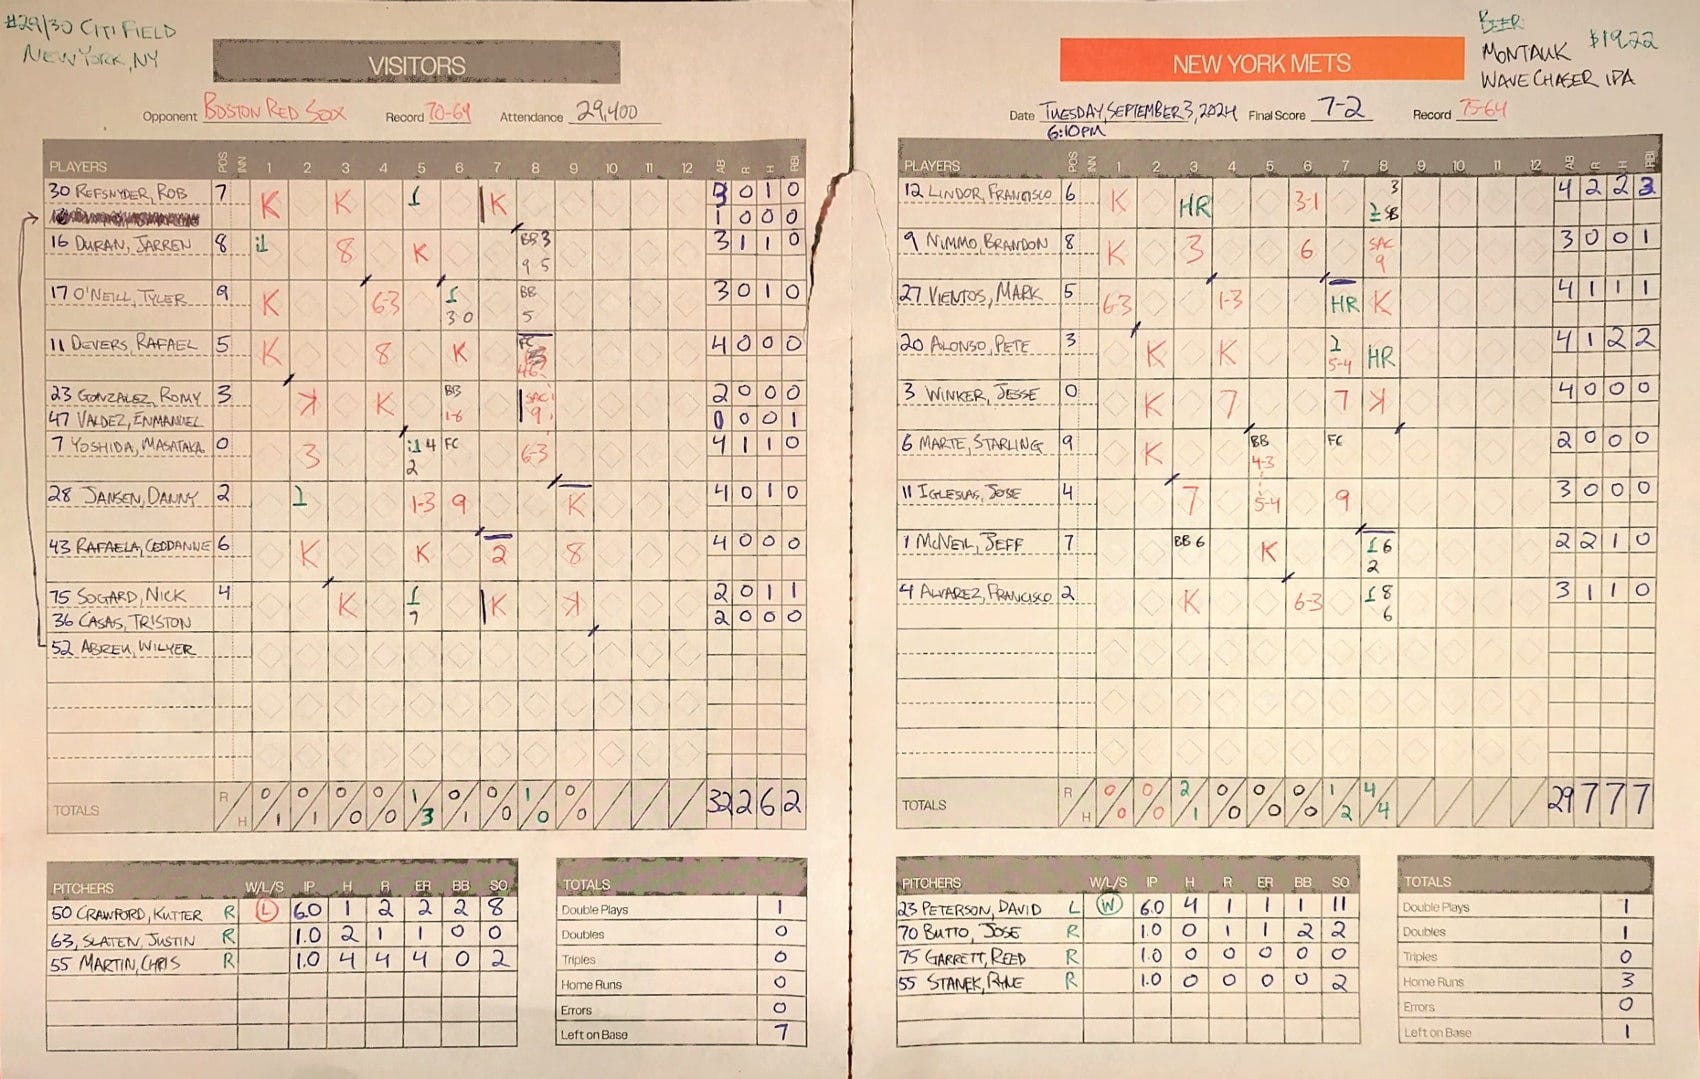 #29/30 CITI FIELD
NEW YORK, NY
VISITORS
Opponent BOSTON RED SOX Record 70-69 Attendance 29,400
PLAYERS POS INN 1 2 3 4 5 6 7 8 9 10 11 12 AB R H RBI
30 REFSNYDER, ROB 7 K K 1 K 3 0 1 0
1 0 0 0
16 DURAN, JARREN 8 1 8 K BB 3 9 5 3 1 1 0
17 O'NEILL, TYLER 9 K 6-3 1 3 0 BB 5 3 0 1 0
11 DEVERS, RAFAEL 5 K 8 K FC 4 0 0 0
23 GONZALEZ, ROMY 3 K K BB 1-6 SAC 9 2 0 0 0
47 VALDEZ, ENMANUEL 0 0 0 1
7 YOSHIDA, MASATAKA 0 3 1 4 2 FC 6-3 4 1 1 0
28 JANSEN, DANNY 2 1 1-3 9 K 4 0 1 0
43 RAFAELA, CEDDANNE 6 K K 2 8 4 0 0 0
75 SOGARD, NICK 4 K 1 7 K K 2 0 1 1
36 CASAS, TRISTON 2 0 0 0
52 ABREU, WILYER
TOTALS R/H 0/1 0/1 0/0 0/0 1/3 0/1 0/0 1/0 0/0 32 2 6 2
PITCHERS W/L/S IP H R ER BB SO
50 CRAWFORD, KUTTER R L 6.0 1 2 2 2 8
63, SLATEN, JUSTIN R 1.0 2 1 1 0 0
55 MARTIN, CHRIS R 1.0 4 4 4 0 2
TOTALS
Double Plays 1
Doubles 0
Triples 0
Home Runs 0
Errors 0
Left on Base 7
BEER:
MONTAUK
WAVE CHASER IPA
$19.22
NEW YORK METS
Date TUESDAY, SEPTEMBER 3, 2024 Final Score 7-2 Record 75-64
6:10PM
PLAYERS POS INN 1 2 3 4 5 6 7 8 9 10 11 12 AB R H RBI
12 LINDOR, FRANCISCO 6 K HR 3-1 3 1 SB 4 2 2 3
9 NIMMO, BRANDON 8 K 3 6 SAC 9 3 0 0 1
27 VIENTOS, MARK 5 6-3 1-3 HR K 4 1 1 1
20 ALONSO, PETE 3 K K 1 5-4 HR 4 1 2 2
3 WINKER, JESSE 0 K 7 7 K 4 0 0 0
6 MARTE, STARLING 9 K BB 4-3 FC 2 0 0 0
11 IGLESIAS, JOSE 4 7 5-4 9 3 0 0 0
1 MCNEIL, JEFF 7 BB 6 K 1 6 2 2 2 1 0
4 ALVAREZ, FRANCISCO 2 K 6-3 1 8 6 3 1 1 0
TOTALS R/H 0/0 0/0 2/1 0/0 0/0 0/0 1/2 4/4 29 7 7 7
PITCHERS W/L/S IP H R ER BB SO
23 PETERSON, DAVID L W 6.0 4 1 1 1 11
70 BUTTO, JOSE R 1.0 0 1 1 2 2
75 GARRETT, REED R 1.0 0 0 0 0 0
55 STANEK, RYNE R 1.0 0 0 0 0 2
TOTALS
Double Plays 1
Doubles 1
Triples 0
Home Runs 3
Errors 0
Left on Base 1